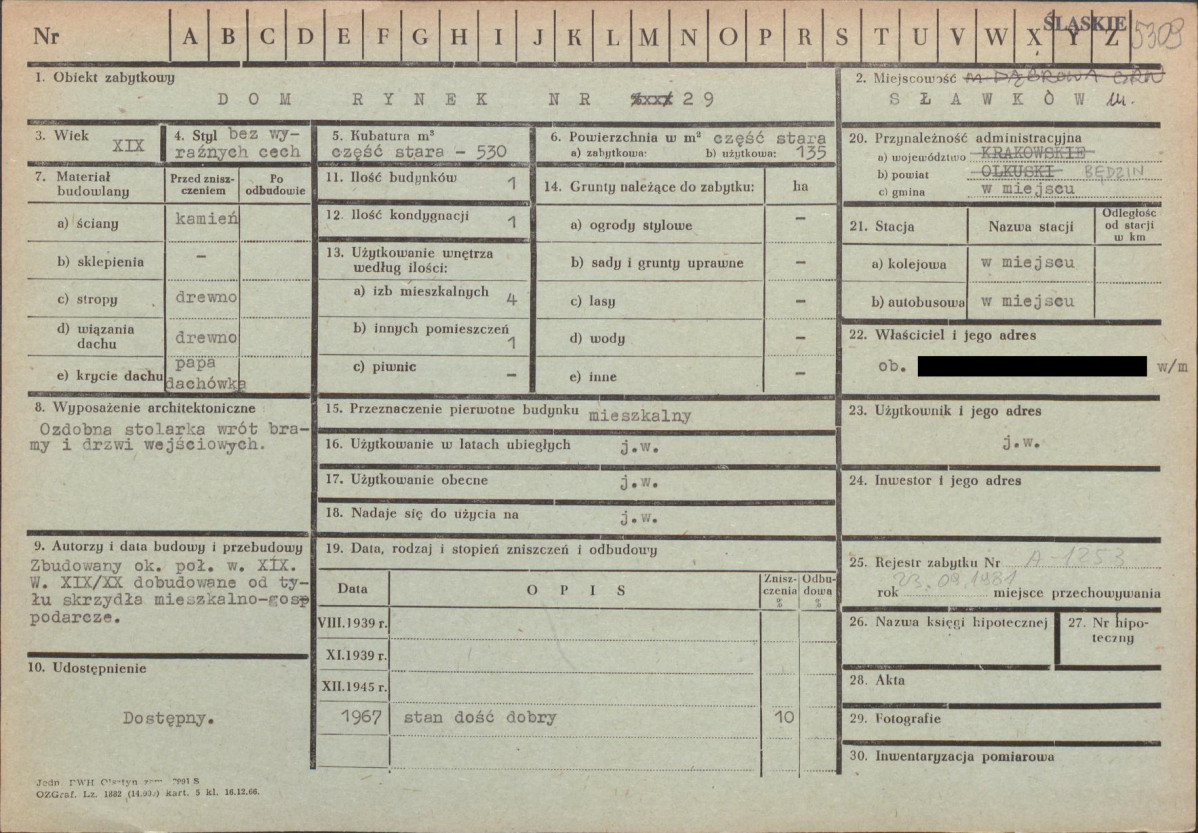 ŚLĄSKIE
Nr A B C D E F G H I J K L M N O P R S T U V W X Y Z 5309
1. Obiekt zabytkowy
DOM RYNEK NR 29
2. Miejscowość M. DĄBROWA GRN
SŁAWKÓW m.
3. Wiek
XIX
4. Styl bez wy-
raźnych cech
5. Kubatura m³
część stara - 530
6. Powierzchnia w m² część stara
a) zabytkowa: b) użytkowa: 135
7. Materiał budowlany
Przed znisz-
czeniem
Po
odbudowie
a) ściany kamień
b) sklepienia -
c) stropy drewno
d) wiązania
dachu drewno
e) krycie dachu papa
dachówka
8. Wyposażenie architektoniczne
Ozdobna stolarka wrót bra-
my i drzwi wejściowych.
9. Autorzy i data budowy i przebudowy
Zbudowany ok. poł. w. XIX.
W. XIX/XX dobudowane od ty-
łu skrzydła mieszkalno-gosp
podarcze.
10. Udostępnienie
Dostępny.
11. Ilość budynków 1
12. Ilość kondygnacji 1
13. Użytkowanie wnętrza
według ilości:
a) izb mieszkalnych 4
b) innych pomieszczeń
1
c) piwnic -
14. Grunty należące do zabytku: ha
a) ogrody stylowe -
b) sady i grunty uprawne -
c) lasy -
d) wody -
e) inne -
15. Przeznaczenie pierwotne budynku mieszkalny
16. Użytkowanie w latach ubiegłych j.w.
17. Użytkowanie obecne j.w.
18. Nadaje się do użycia na j.w.
19. Data, rodzaj i stopień zniszczeń i odbudowy
Data OPIS
Znisz-
czenia
%
Odbu-
dowa
%
VIII.1939 r.
XI.1939 r.
XII.1945 r.
1967 stan dość dobry 10
20. Przynależność administracyjna
a) województwo KRAKOWSKIE
b) powiat OLKUSKI BĘDZIN
c) gmina w miejscu
21. Stacja Nazwa stacji
Odległość
od stacji
w km
a) kolejowa w miejscu
b) autobusowa w miejscu
22. Właściciel i jego adres
ob. w/m
23. Użytkownik i jego adres
j.w.
24. Inwestor i jego adres
25. Rejestr zabytku Nr A-1253
rok 23.09.1981 miejsce przechowywania
26. Nazwa księgi hipotecznej
27. Nr hipo-
teczny
28. Akta
29. Fotografie
30. Inwentaryzacja pomiarowa
Jedn. DWH Olsztyn
OZGraf. Lz. 1882 (14.000) kart. 5 kl. 16.12.66.